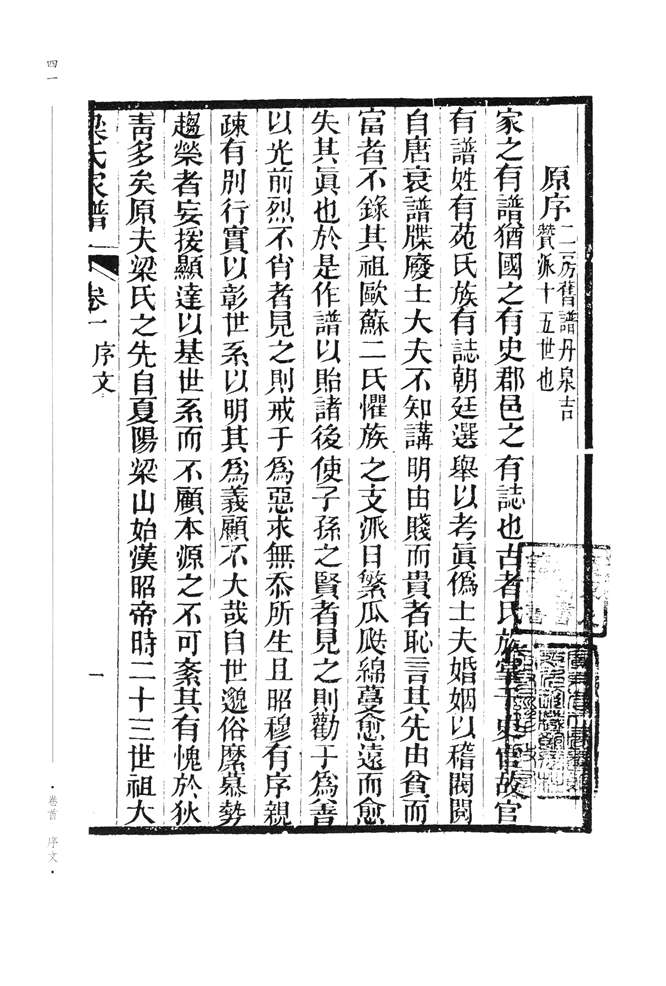 原序 二房舊譜丹泉吉
贊派十五世也
家之有譜猶國之有史郡邑之有誌也古者氏族掌于史官故官
有譜姓有苑氏族有誌朝廷選舉以考眞僞士夫婚姻以稽閥閱
自唐衰譜牒廢士大夫不知講明由賤而貴者恥言其先由貧而
富者不錄其祖歐蘇二氏懼族之支派日繁瓜瓞綿蔓愈遠而愈
失其眞也於是作譜以貽諸後使子孫之賢者見之則勸于爲善
以光前烈不肖者見之則戒于爲惡求無忝所生且昭穆有序親
疎有別行實以彰世系以明其爲義顧不大哉自世邈俗靡慕勢
趨榮者妄援顯達以基世系而不顧本源之不可紊其有愧於狄
靑多矣原夫梁氏之先自夏陽梁山始漢昭帝時二十三世祖大
梁氏家譜 卷一 序文 一
四一
·卷首 序文·